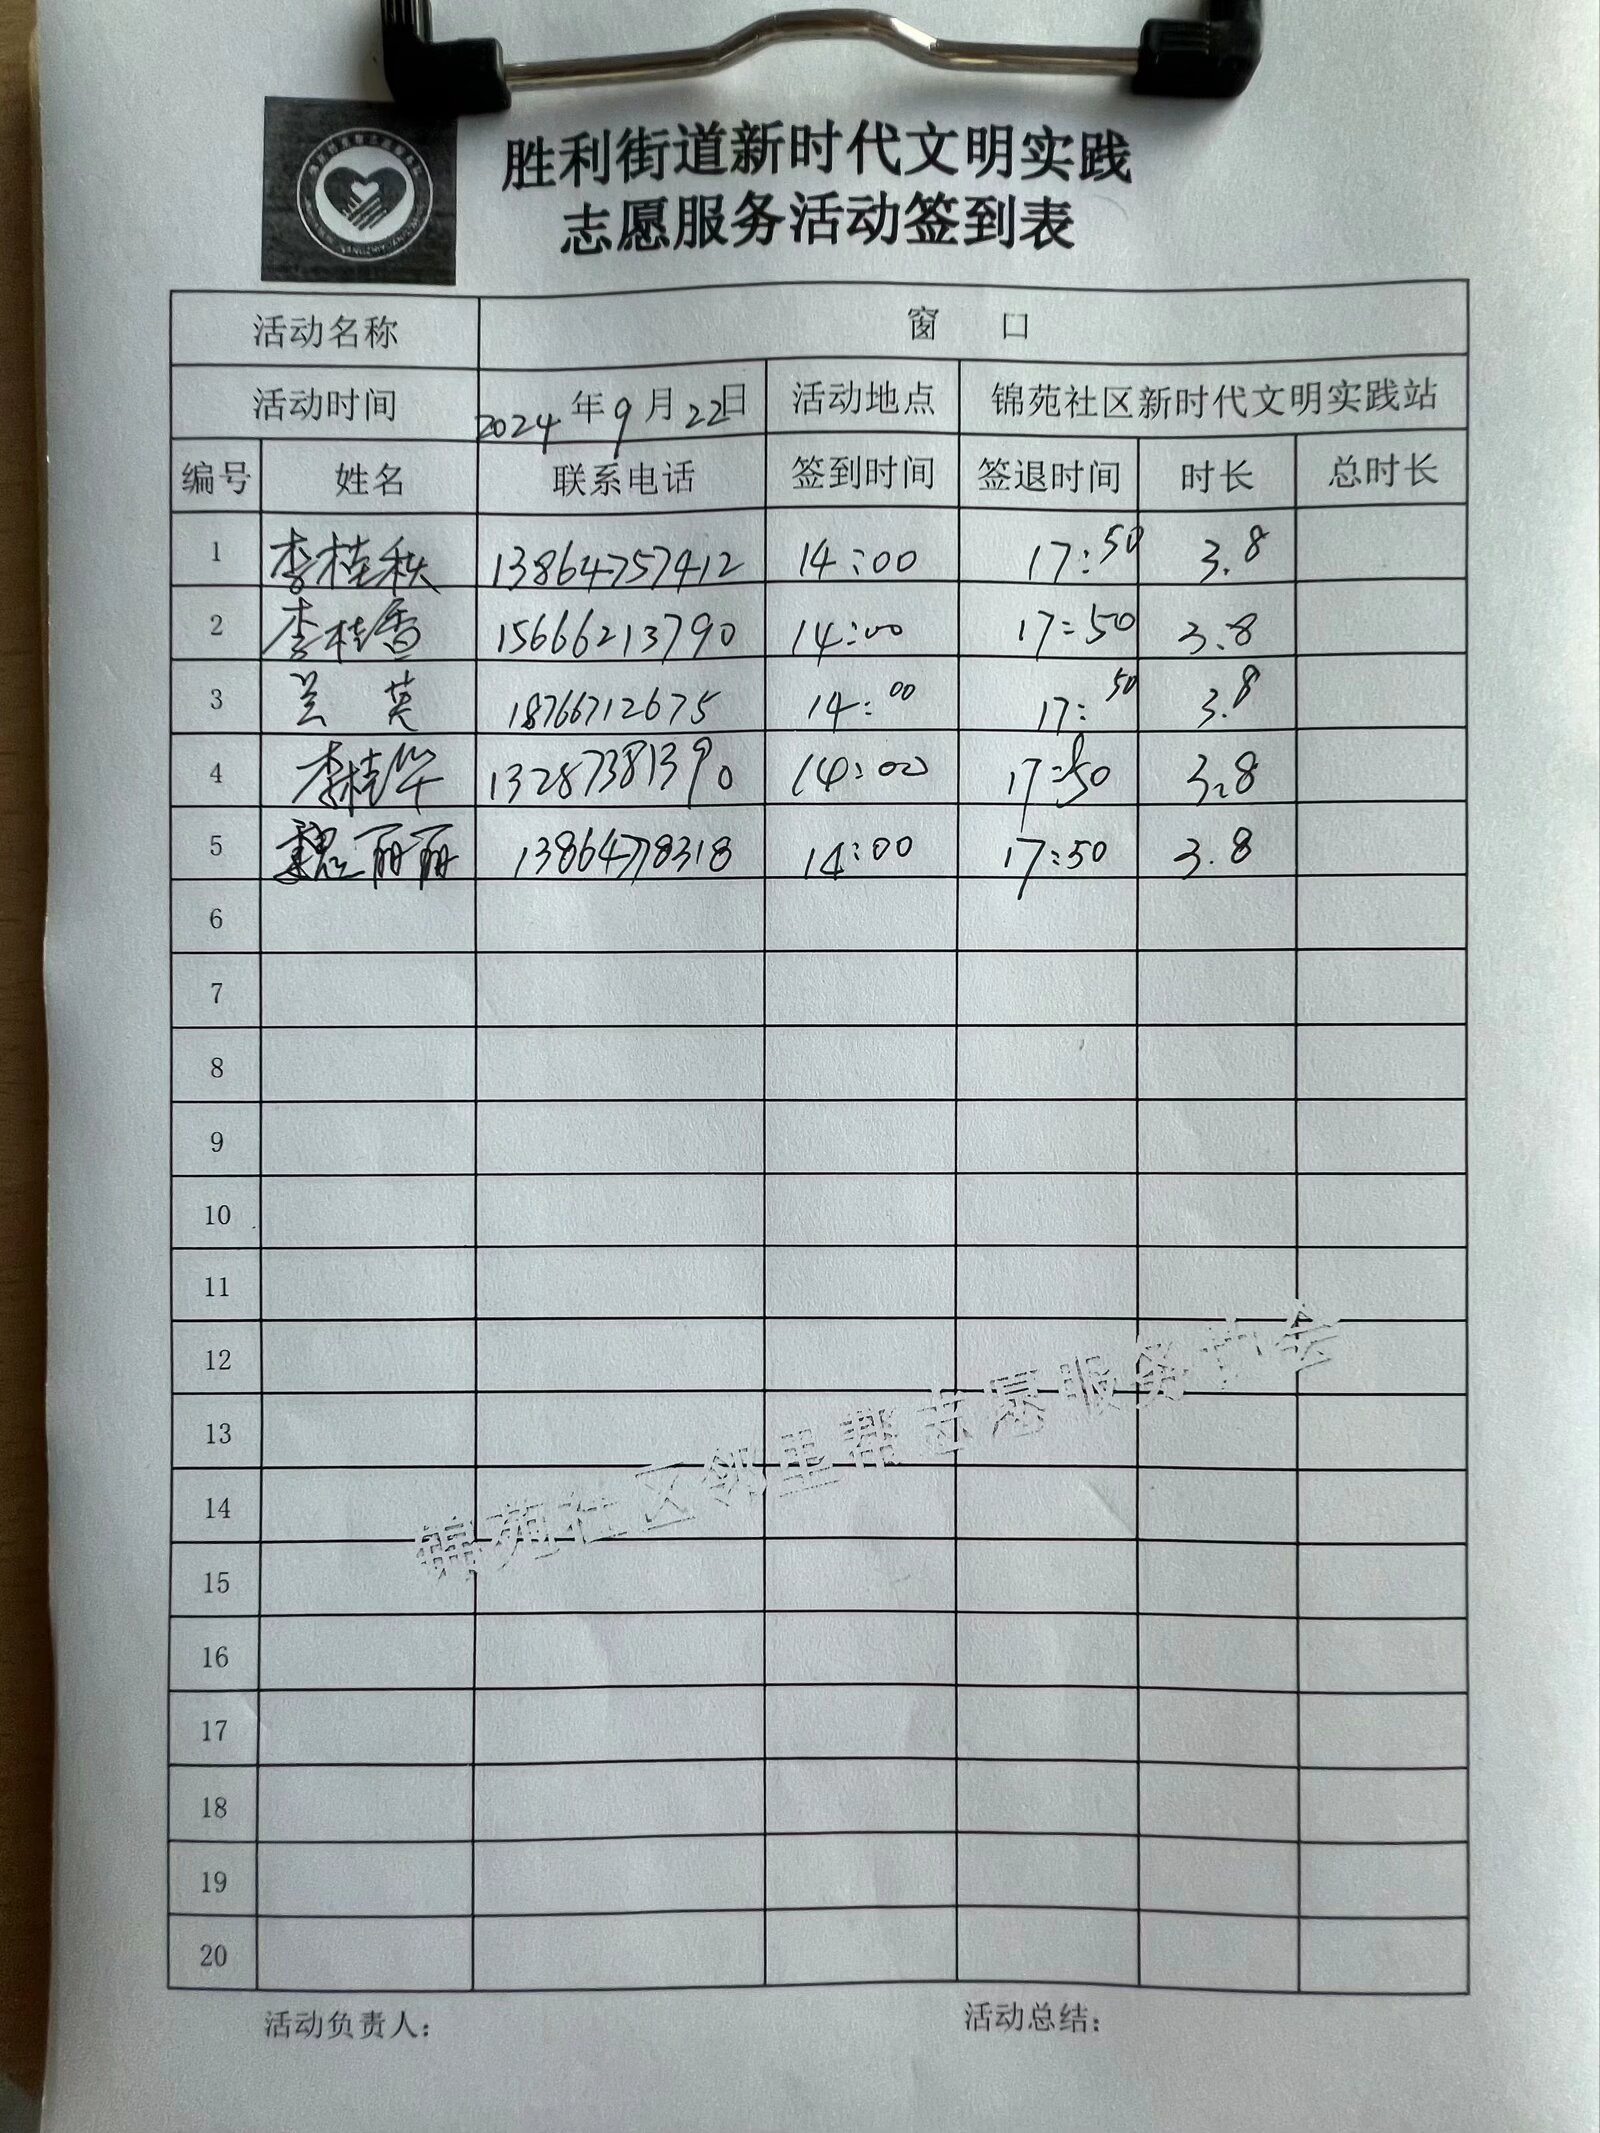 胜利街道新时代文明实践
志愿服务活动签到表
活动名称 窗 口
活动时间 2024年9月22日 活动地点 锦苑社区新时代文明实践站
编号 姓名 联系电话 签到时间 签退时间 时长 总时长
1 李桂秋 13864757412 14:00 17:50 3.8
2 李桂香 15666213790 14:00 17:50 3.8
3 兰英 18766712675 14:00 17:50 3.8
4 李桂华 13287381390 14:00 17:50 3.8
5 魏丽丽 13864778318 14:00 17:50 3.8
6
7
8
9
10
11
12
13
14
15
16
17
18
19
20
锦苑社区邻里帮志愿服务协会
活动负责人： 活动总结：